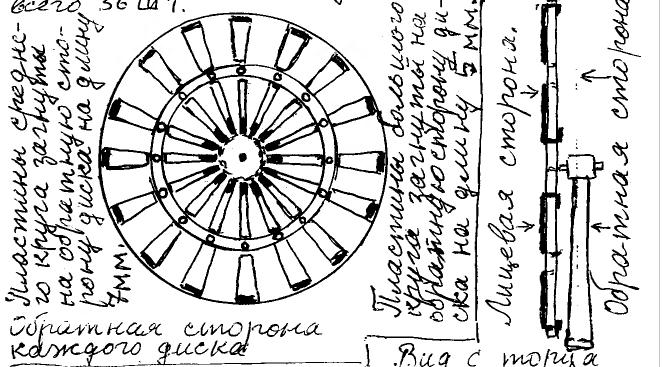 всего 36 шт.
Пластины средне-
го круга загнуты
на обратную сто-
рону диска на длину
7 мм.
Пластины большого
круга загнуты на
обратную сторону ди-
ска на длину 5 мм.
Лицевая сторона.
Обратная сторона
Обратная сторона
каждого диска
Вид с торца